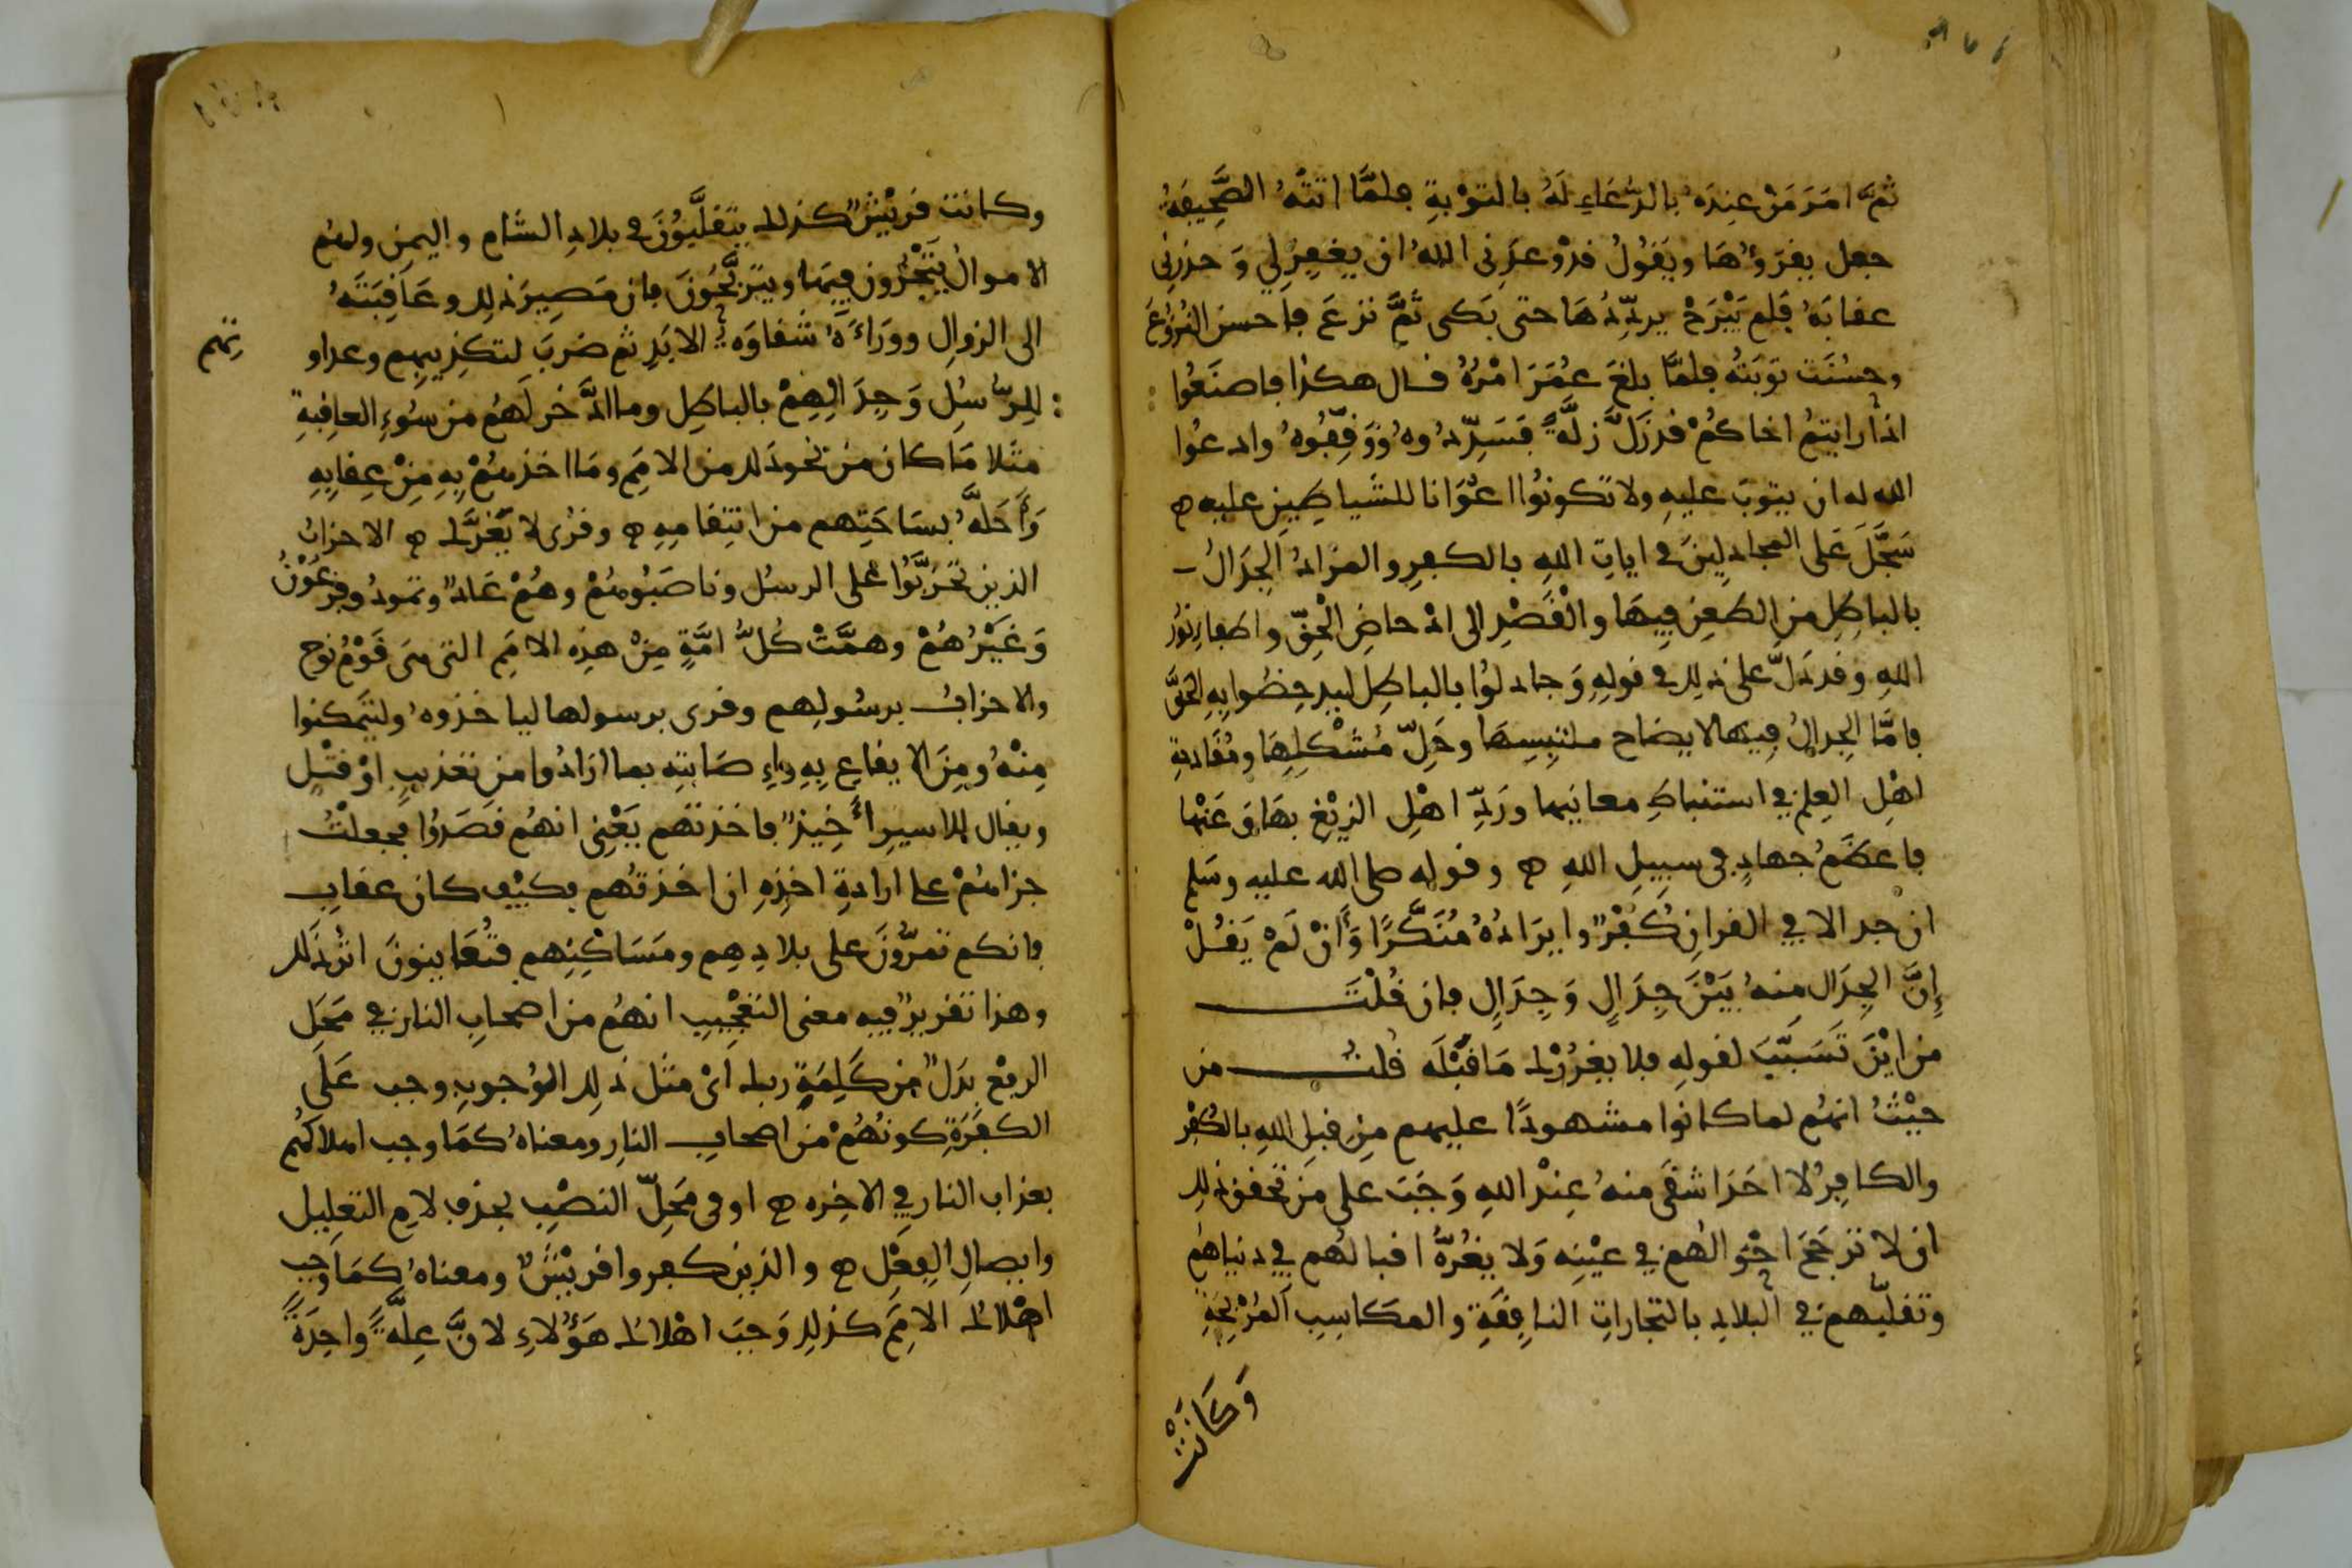 ثمَّ امَرَ مَنْ عِندَهُ بالدُّعَاءِ لَهُ بالتوْبةِ فلمَّا اتتْهُ الصَّحِيفَةُ
جعل يقرَؤُهَا ويَقُولُ قدْ وعدَنى اللهُ ان يغفِرَ لِي وَحذرنِى
عقابَهُ فَلم يَبْرَحْ يردِّدُهَا حتى بَكى ثمَّ نزعَ فأحسنَ النُّزُوعَ
وحسُنَت توبَتُهُ فلمَّا بلغَ عمَرَ امْرُهُ قال هكذا فاصنَعُوا
اذا رايتمُ اخاكمُ قد زَلَّ زلَّةً فَسَدِّدُوهُ ووَقِّفُوهُ وادعُوا
الله له ان يتوبَ عليهِ ولا تكونُوا اعْوَانا للشياطِين عليه ه
سَجَّلَ عَلى المجادِلِينَ في اياتِ اللهِ بالكفرِ والمرادُ الجِدَالُ
بالباطِل من الطعنِ فِيهَا والْقَصْدِ الى ادْحاضِ الْحقّ واطفاءِ نُورِ
اللهِ وقد دَلّ على ذلِك في قولِهِ وَجادلوُا بالباطِل ليدحِضُوا بِهِ الحَقَّ
فامَّا الجِدالُ فِيها لايضاح ملتبِسِهَا وحَلّ مُشْكِلِهَا ومُقَادحةِ
اهْلِ العِلم في استنباطِ معانيها ورَدّ اهْلِ الزيْغ بهَا وَعَنْها
فاعظَمُ جهادٍ في سبِيلِ اللهِ ه وقوله صلى الله عليه وسَلم
ان جدالا في القرانِ كُفْرٌ وايرَادُهُ مُنَكَّرًا وَأَنْ لَمْ يَقُلْ
إِنَّ الجِدَال مِنهُ بَيْنَ جِدَالٍ وَجِدَالٍ فان قُلْتَ
من ايْنَ تَسَبَّبَ لقولِهِ فلا يغرُرْك مَا قبْلَه قلتُ من
حيْثُ انهُم لما كانوا مشهودًا عليهم مِن قبلِ اللهِ بالكفْرِ
والكافِرُ لا احَدَ اشقَى منهُ عِنْدَ اللهِ وَجَبَ على مَن تحقق ذلِك
ان لا ترجَحَ احْوَالُهم في عيْنِه وَلا يغُرُّهُ اقبالُهم في دنياهُم
وتقلّبُهم في البلادِ بالتجاراتِ النافِقَةِ والمكاسِبِ المُرْبحَةِ
وَكَانَتْ
وكانت قريْشٌ كذلك يتقلَّبُوْنَ في بلادِ الشام واليمن ولهُم
الاموالُ يَتّجْرُون فِيهَا ويَترَبَّحُونَ فان مَصِيرَ ذلِك وعَاقِبَتَهُ
الى الزوالِ ووَرَاءَهُ شَقاوَةُ الابَدِ ثم ضربَ لتكذِيبِهم وعداو
تِهم
للرّسُلِ وَجِدَالِهِمْ بالباطِل وما ادَّخر لَهُم من سُوءِ العاقِبةِ
مثَلا مَا كان مِن نحو ذلك من الامَمِ ومَا اخذهُمْ بِهِ مِنْ عِقابِهِ
وَأَحَلَّهُ بسَاحَتِهم من انتِقامِهِ ه وقرْى لا يَغُرَّك ه الاحزابُ
الذين تَحَزَّبُوا على الرسُل وناصَبُوهُمْ وهُمْ عَادٌ وثمودُ وفِرعَوْنُ
وَغَيْرُهُمْ وهمَّتْ كُلُّ امَّةٍ مِنْ هذِه الامَمِ التى هىَ قَوْمُ نُوح
والاحزابُ برسُولِهم وقرى برسولها لياخذوهُ وليتَمكنوا
مِنْهُ ومِنَ الايقاعِ بِهِ واصَابتِهِ بما ارَادُوا من تعذيبٍ اوْ قتْلٍ
ويقال للاسيرِ أَخِيذٌ فاخذتهم يَعْنِى انهُم قصَدُوا فجعلْتُ
جزاهُمْ على ارادةِ اخذِهِ ان اخذتُهم فكيْف كان عقابِ
فانكم تمرُّونَ على بلادِهِم ومَسَاكِنِهِم فتُعَاينونَ اثرَ ذَلك
وهذا تقريرٌ فيه معنى التعْجِيبِ انهُم من اصحابِ النار في مَحَل
الرفعْ بدَلٌ من كَلِمَةِ ربك اىْ مثل ذلِك الوُجوبِ وجب عَلَى
الكفَرَةِ كونُهُمْ من اصحابِ النارِ ومعناهُ كمَا وجب اهلاكهُم
بعذاب النار في الاخِره ه او في مَحَلّ النصْبِ بحذفِ لامِ التعلِيل
وايصالِ الفِعْلِ ه والذين كفروا قريْشٌ ومعناهُ كمَا وَجب
اهْلاكُ الامَمِ كذلِك وَجبَ اهْلاكُ هَؤُلاءِ لانَّ عِلَّةً واحِدَةً